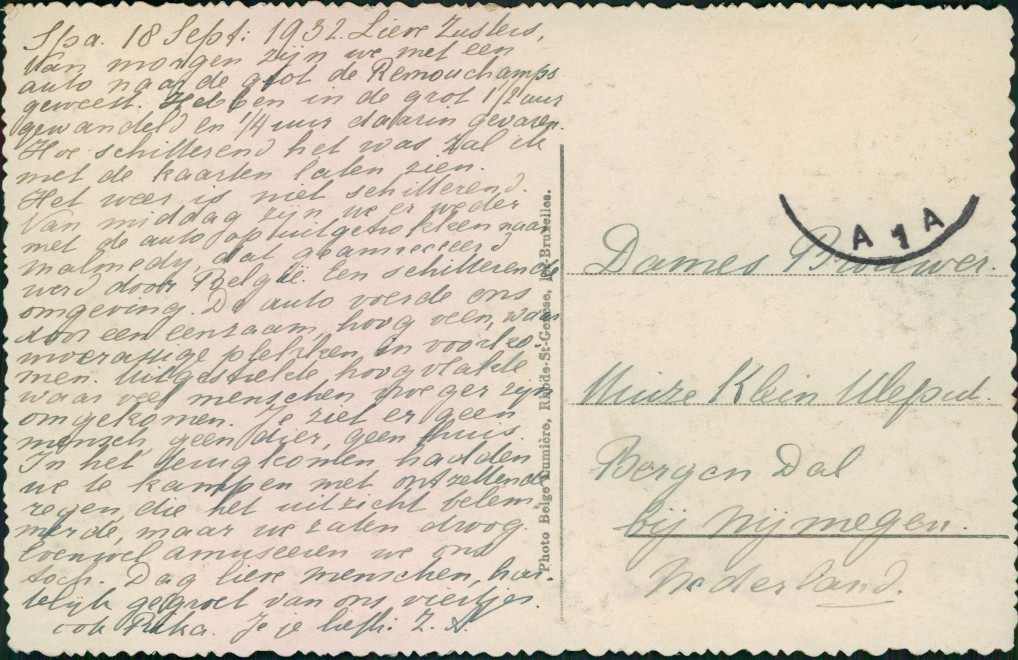 Spa. 18 Sept: 1932. Lieve Zusters,
Van morgen zijn we met een
auto naar de grot de Remouchamps
geweest. Hebben in de grot 1/2 uur
gewandeld en 1/4 uur daarin gevaren.
Hoe schitterend het was zal ik
met de kaarten laten zien.
Het weer is niet schitterend.
Van middag zijn we er weder
met de auto op uitgetrokken naar
Malmedy, dat geannecceerd
werd door België. Een schitterende
omgeving. De auto voerde ons
door een eenzaam, hoog veen, waar
moerassige plekken in voorko-
men. Uitgestrekte hoogvlakte
waar veel menschen vroeger zijn
omgekomen. Je ziet er geen
mensch, geen dier, geen huis.
In het terugkomen hadden
we te kampen met ontzettende
regen, die het uitzicht belem-
merde, maar we zaten droog.
Evenwel amuseeren we ons
toch. Dag lieve menschen, har-
telijk gegroet van ons viertjes.
ook Rika. Je je liefh: Z.
Photo Belge Lumière, Rhode-St-Genèse, lez-Bruxelles.
A 1 A
Dames Brouwer.
Huize Klein
Bergen Dal
bij Nijmegen.
Nederland.